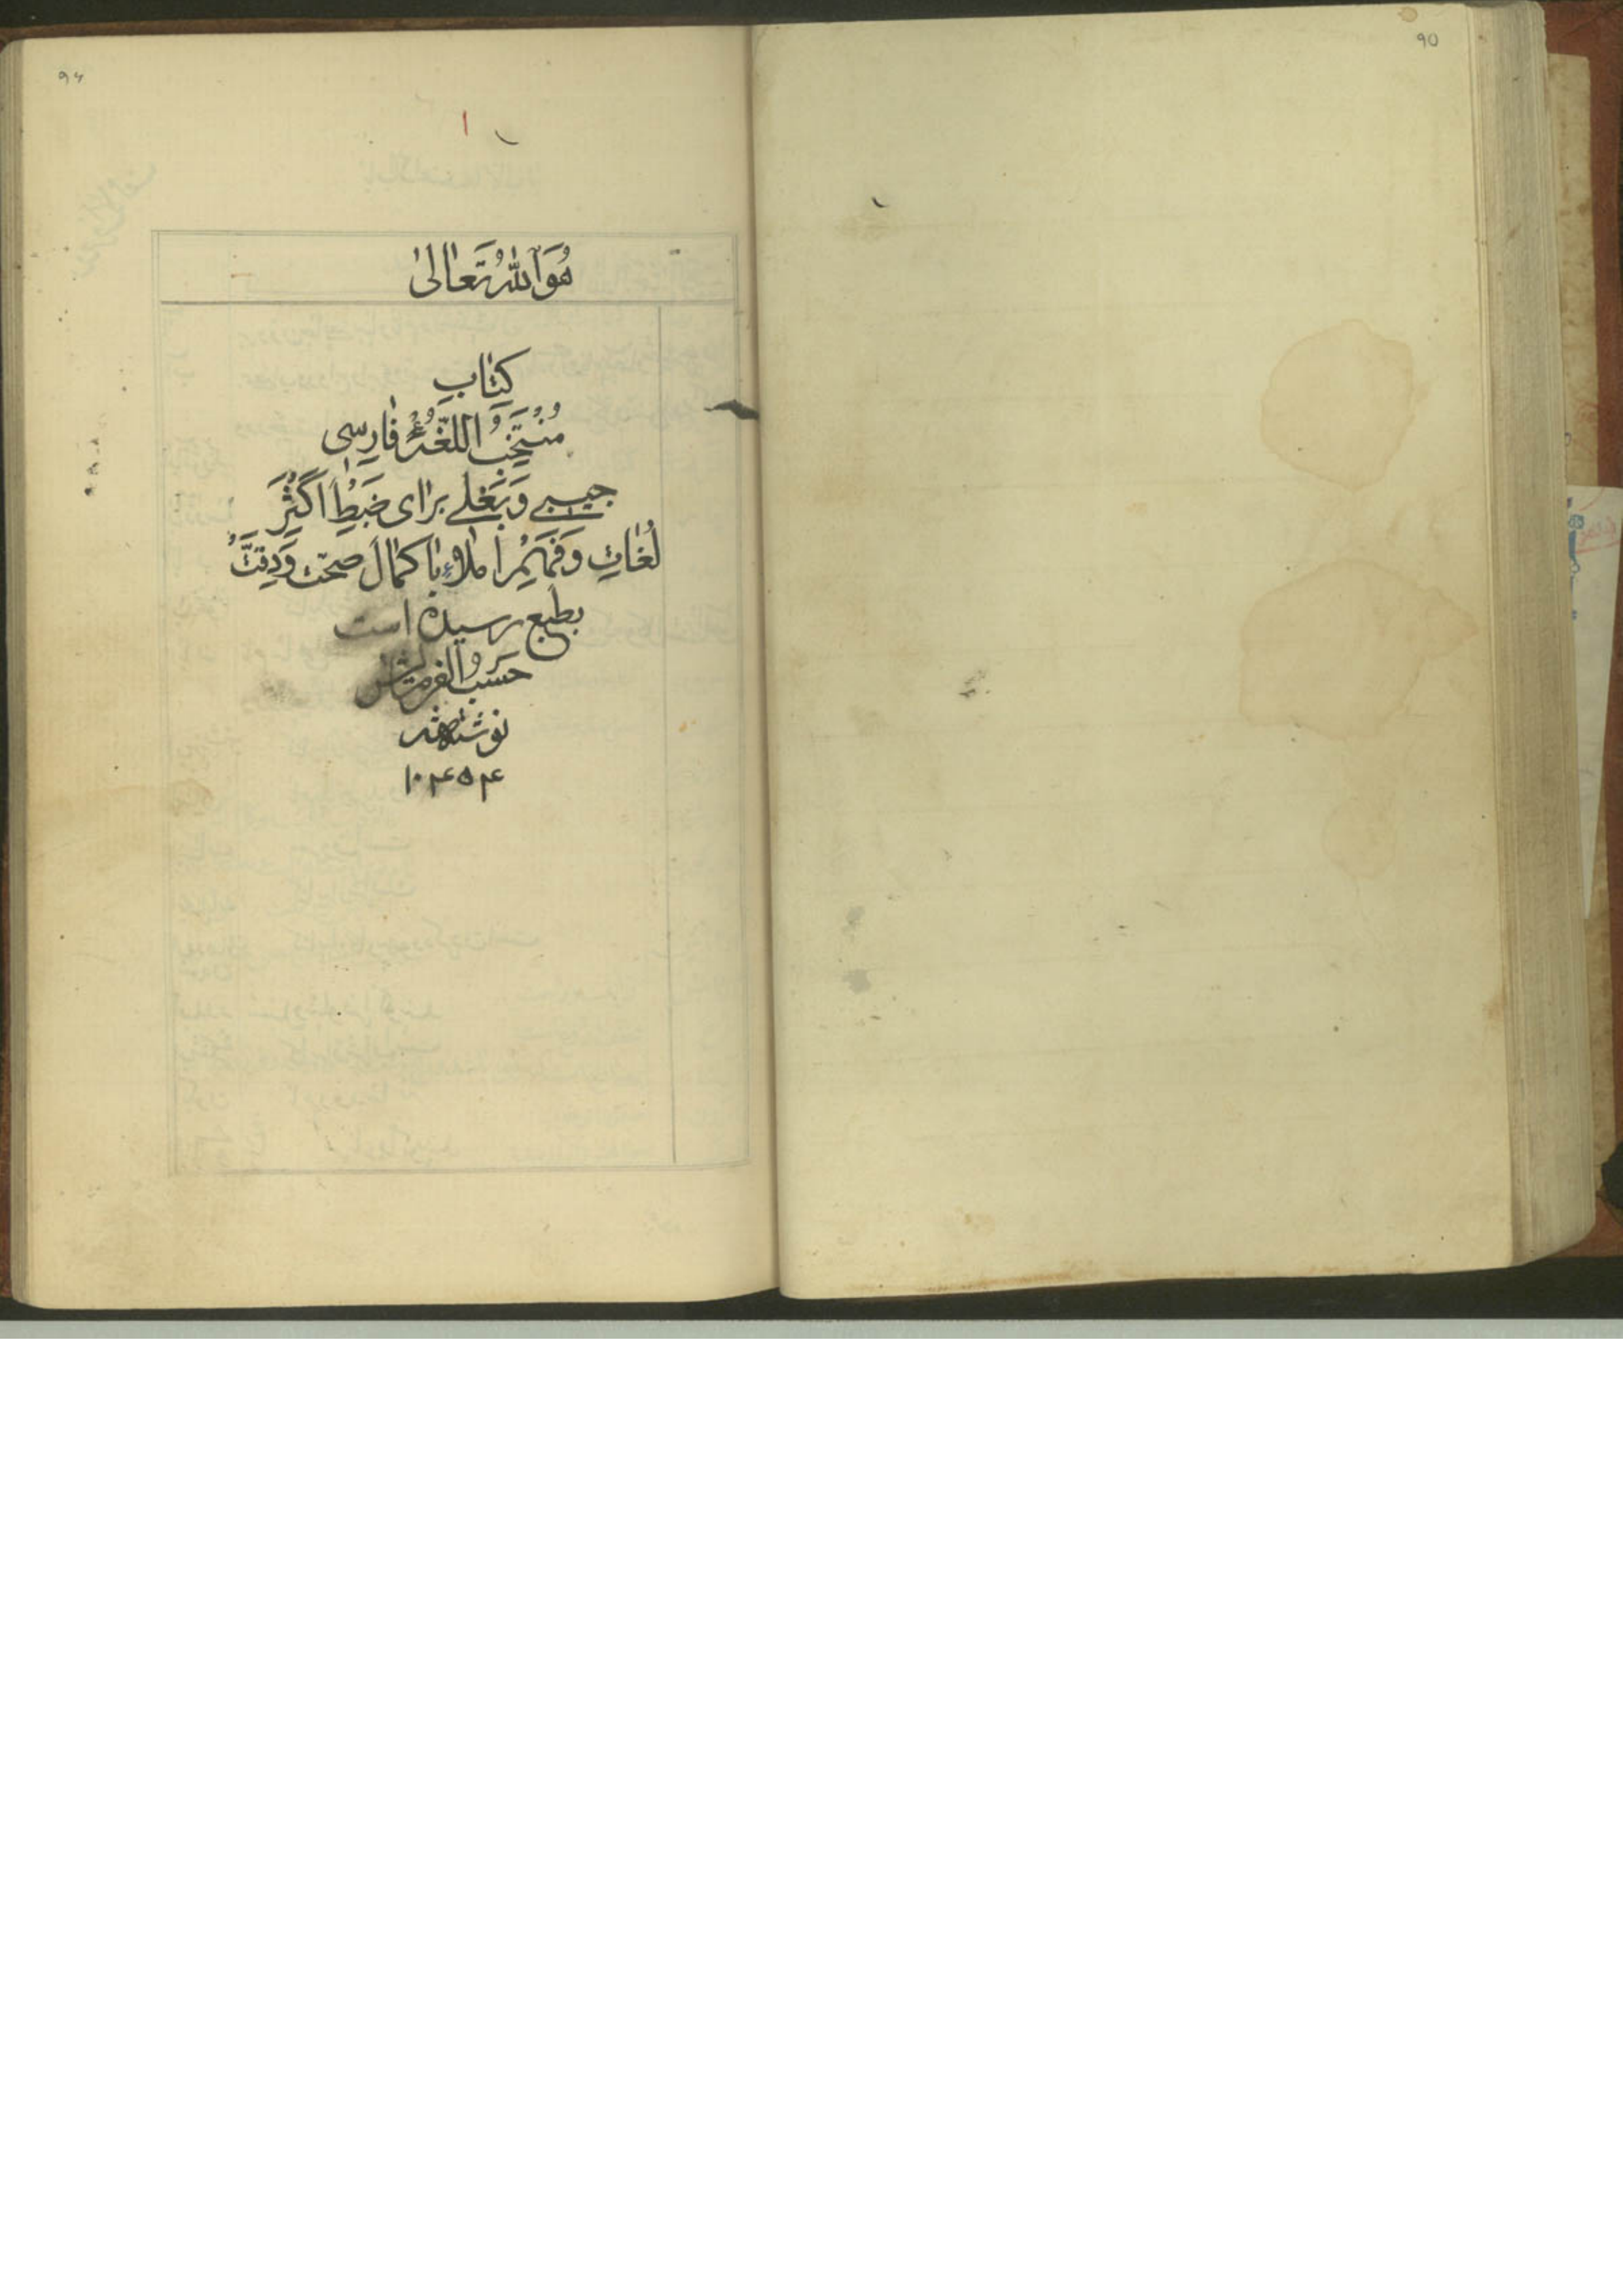 ۹۵
۹۶
۱
هُوَ اللهُ تَعَالىٰ
كِتٰابِ
مُنْتَخَبُ اللُّغَةُ فٰارِسی
جیبی وَ بَغَلی برٰای ضَبْطِ اَكْثَرِ
لُغٰاتِ وَ فَهْمِ اِملاءِ بٰا كَمٰالِ صحّت وَ دِقَّت
بطبع رسیده است
حَسَبُ الفرمایش
نوشته شد
۱۰۴۵۴